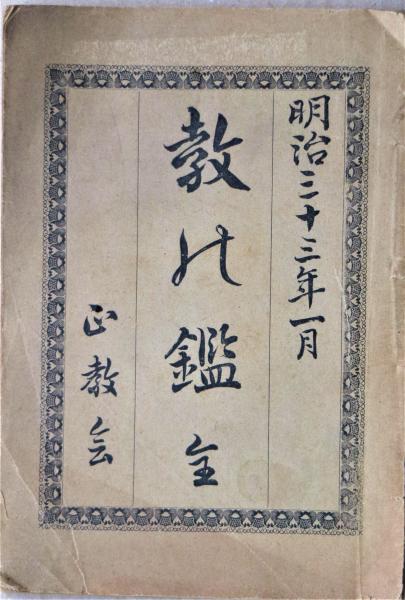 明治三十三年一月
教の鑑 全
正教会